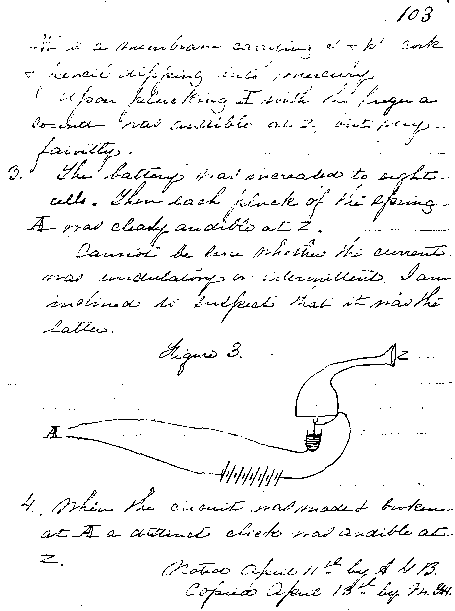 103
It is a membrane carrying at k' cork
& pencil dipping into mercury
Upon plucking A with the finger a
sound was audible at Z, but very
faintly.
3. The battery was increased to eight
cells. Then each pluck of the spring
A was clearly audible at Z.
Cannot be sure whether the current
was undulatory or intermittent. I am
inclined to suspect that it was the
latter.
Figure 3.
Z
A
4. When the circuit was made & broken
at A a distinct click was audible at
Z.
Noted April 11th by A G B.
Copied April 13th by